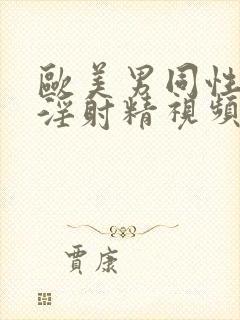 歐美男同性
淫射精視頻
賈康